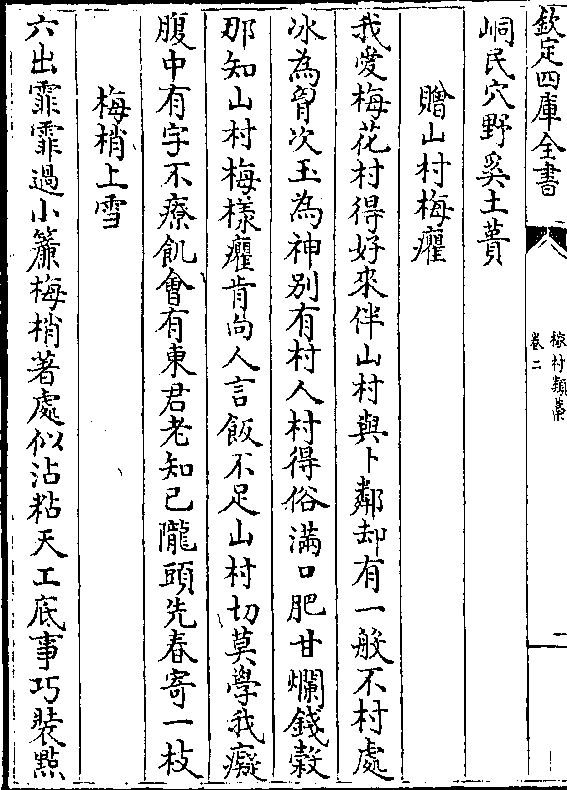 欽定四庫全書
稼村類藁
卷二
二
峒民穴野奚土蕢
贈山村梅癯
我愛梅花村得好來伴山村與卜鄰却有一般不村處
冰為胷次玉為神别有村人村得俗滿口肥甘爛錢榖
那知山村梅様癯肯向人言飯不足山村切莫學我癡
腹中有字不療飢㑹有東君老知己隴頭先春寄一枝
梅梢上雪
六出霏霏過小簾梅梢著處似沾粘天工底事巧裝㸃